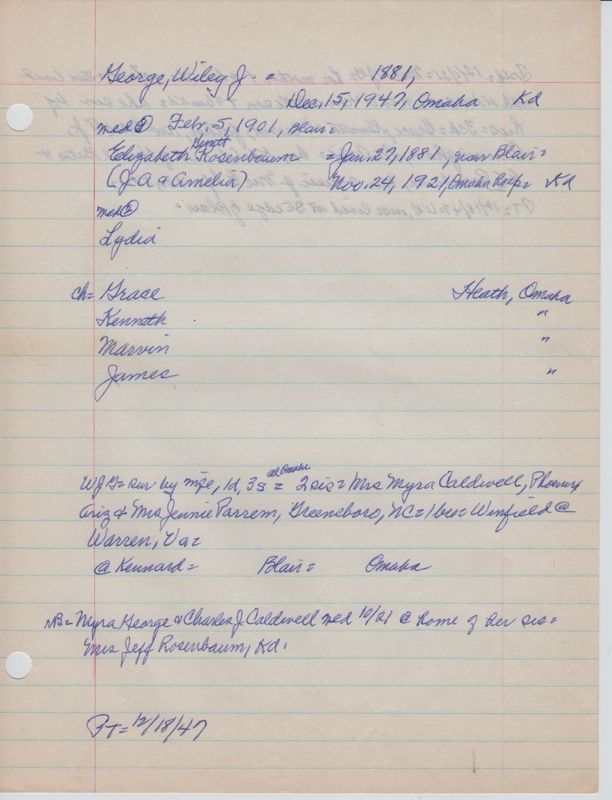 George, Wiley J. = 1881,
Dec. 15, 1947, Omaha Kd
med ① Feb. 5, 1901, Blair=
Elizabeth Hyatt Rosenbaum = Jan. 27, 1881, near Blair=
(J A & Amelia) Nov. 24, 1921, Omaha Hosp= Kd
med ②
Lydia
ch= Grace Heath, Omaha
Kenneth "
Marvin "
James "
WJG= sur by wife, 1d, 3s = all Omaha 2 sis= Mrs Myra Caldwell, Phoenix
Ariz & Mrs Jennie Parrem, Greensboro, NC= 1 bro= Winfield @
Warren, Va=
@ Kennard= Blair= Omaha
NB= Myra George & Charles J. Caldwell med 10/21 @ home of her sis=
Mrs Jeff Rosenbaum, Kd.
PT= 12/18/47